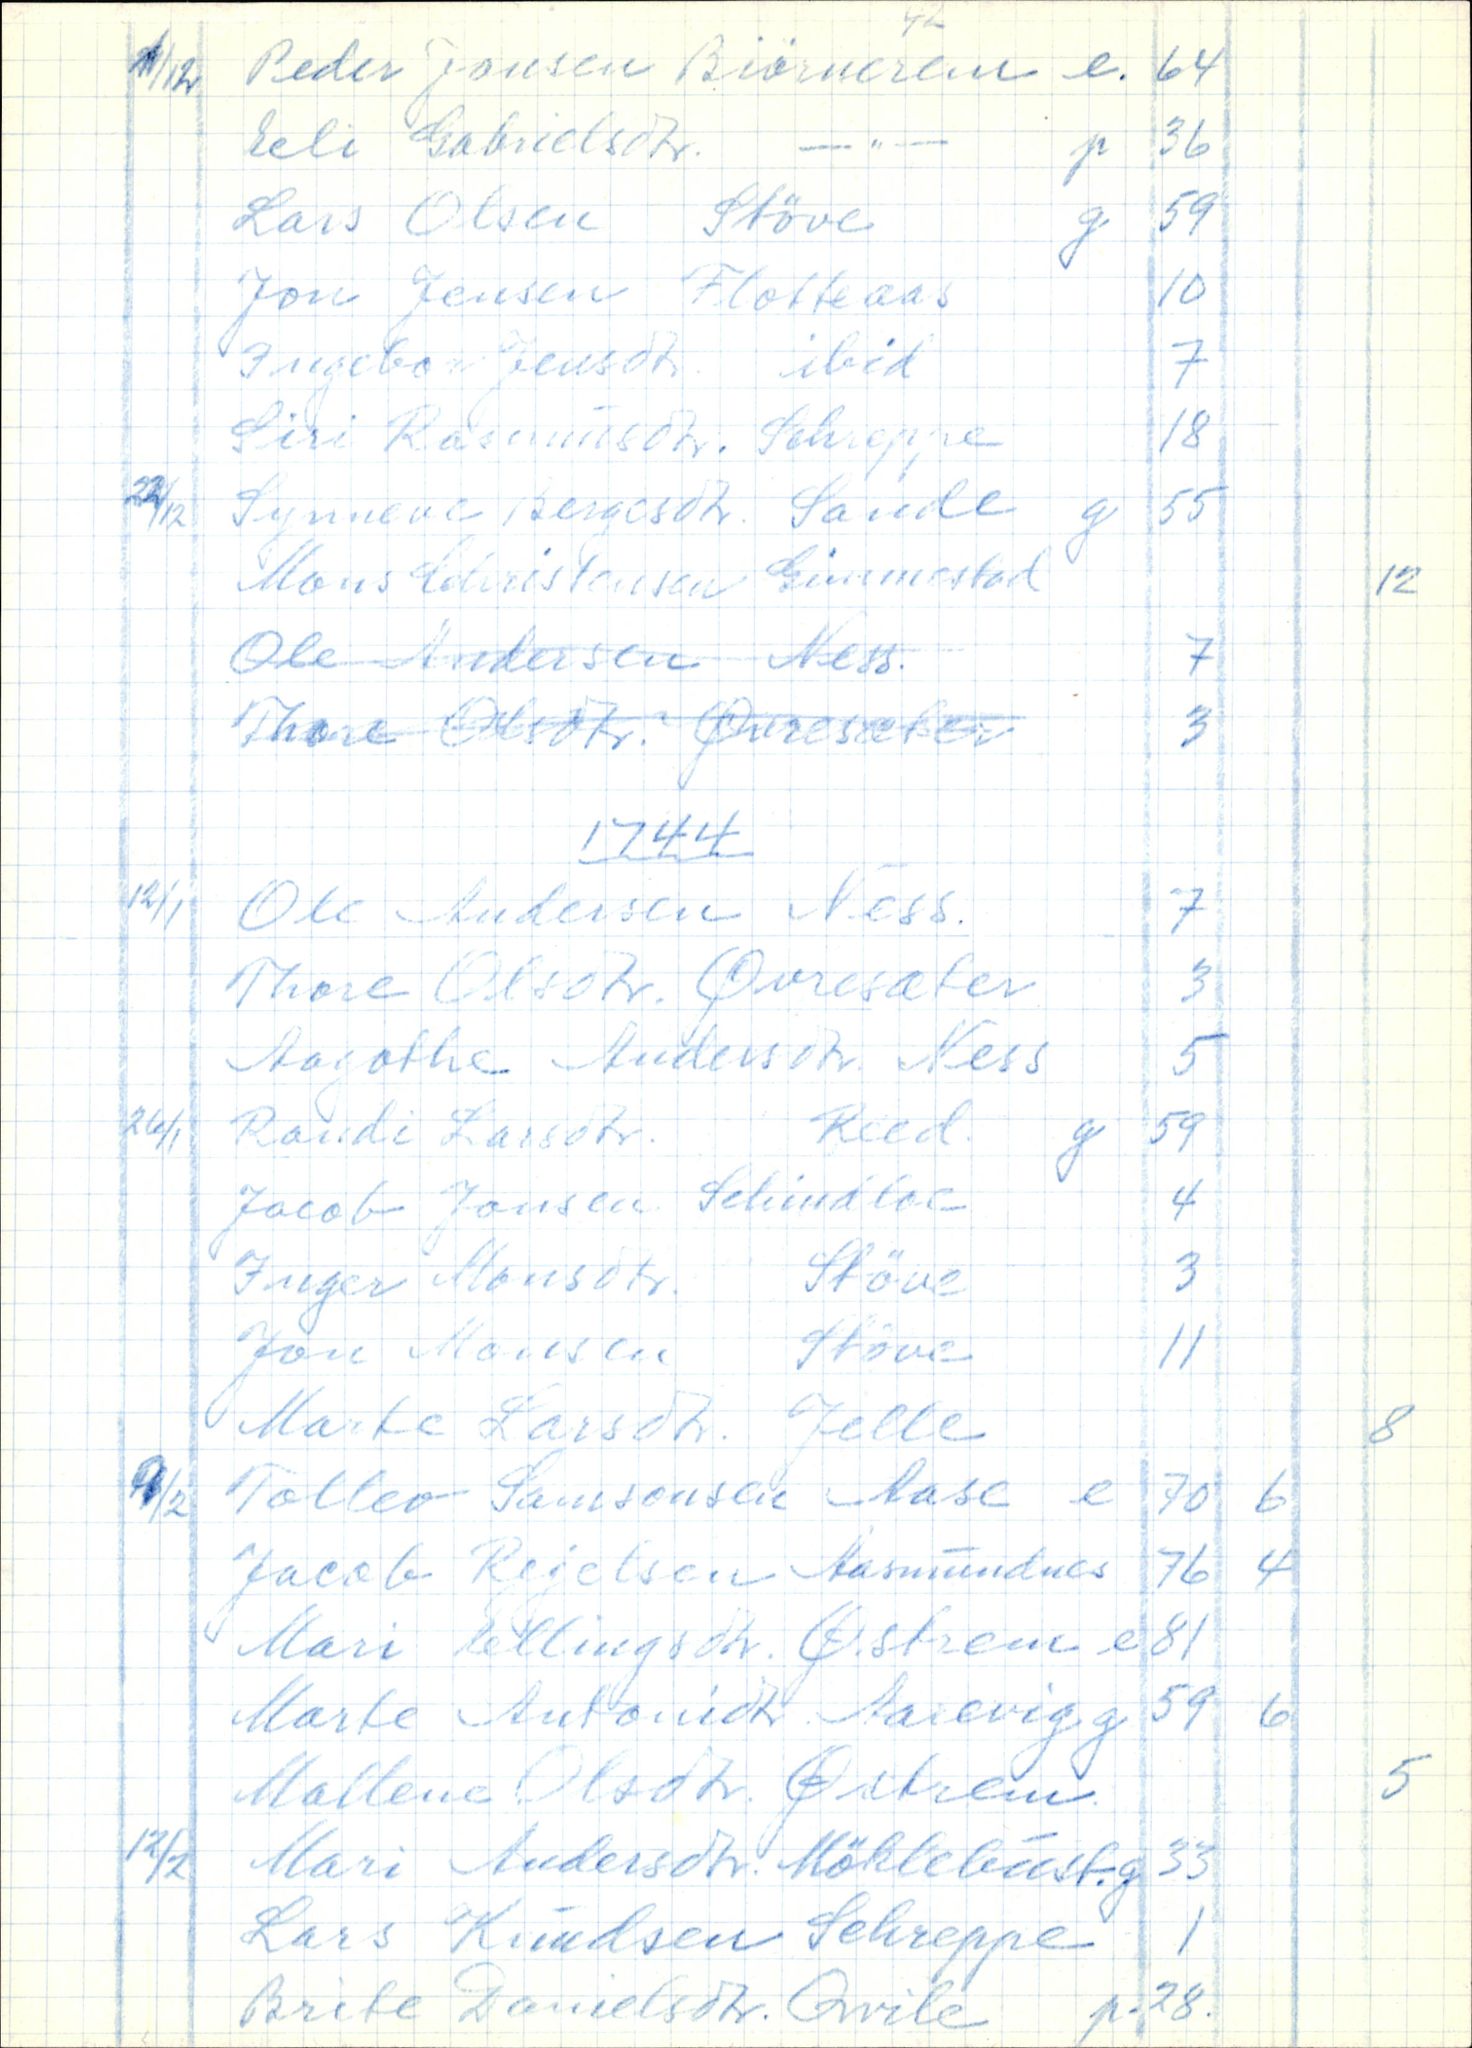 /12 Peder Jonsen Biörnerem e. 64
Eli Gabrielsdtr. —"— p 36
Lars Olsen Stöve g 59
Jon Jensen Flotteaas 10
Ingebor Jensdtr. ibid 7
Siri Rasmusdtr. Schreppe 18
22/12 Synneve Bergesdtr. Sande g 55
Mons Christensen Gimmestad 12
Ole Andersen Ness. 7
Thore Olsdtr. Øvresæter 3
1744
12/1 Ole Andersen Ness. 7
Thore Olsdtr. Øvresæter 3
Aagothe Andersdtr. Ness 5
26/1 Randi Larsdtr. Reed. g 59
Jacob Jonsen Schindloe 4
Inger Monsdtr. Stöve 3
Jon Monsen Stöve 11
Marte Larsdtr. Jelle 8
9/2 Tollev Samsonsen Aase e 70 6
Jacob Rejelsen Aasmundnes 76 4
Mari Ellingsdtr. Østrem e 81
Marte Antonidtr. Aarevig g 59 6
Mallene Olsdtr. Østrem. 5
12/2 Mari Andersdtr. Möklebust. g 33
Lars Knudsen Schreppe 1
Brite Danielsdtr. Qvile p. 28.